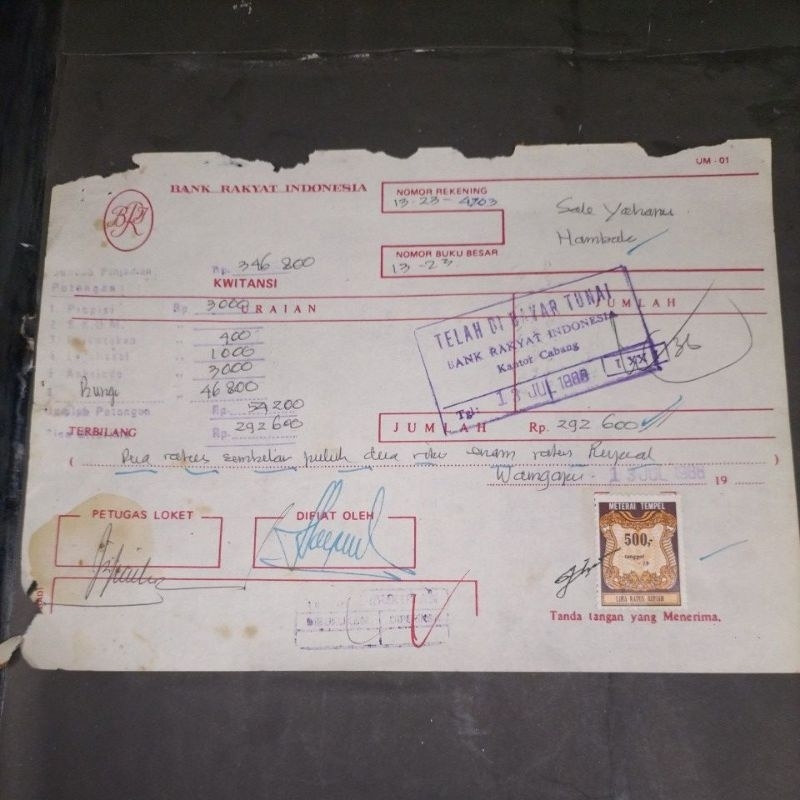 UM - 01
BANK RAKYAT INDONESIA
BRI
NOMOR REKENING
13-23-4703
Sale Yohanu
Hambale
NOMOR BUKU BESAR
13-23
Rp. 346 800
Potongan:
KWITANSI
1. Propisi Rp 3000
URAIAN
JUMLAH
2. " 400
3. " 1000
" 3000
Bungi 46 800
Jumlah Potongan Rp. 54 200
Rp. 292 600
TELAH DI BAYAR TUNAI
BANK RAKYAT INDONESIA
Kantor Cabang
Tgl: 13 JUL 1988 I XX
TERBILANG
JUMLAH Rp. 292 600
( Dua ratus sembilan puluh dua ribu enam ratus Rupiah )
Waingapu - 13 JUL 1988 19
PETUGAS LOKET
DIFIAT OLEH
METERAI TEMPEL
500,-
tanggal
19
LIMA RATUS RUPIAH
DIBUKUKAN DIPERIKSA
Tanda tangan yang Menerima.